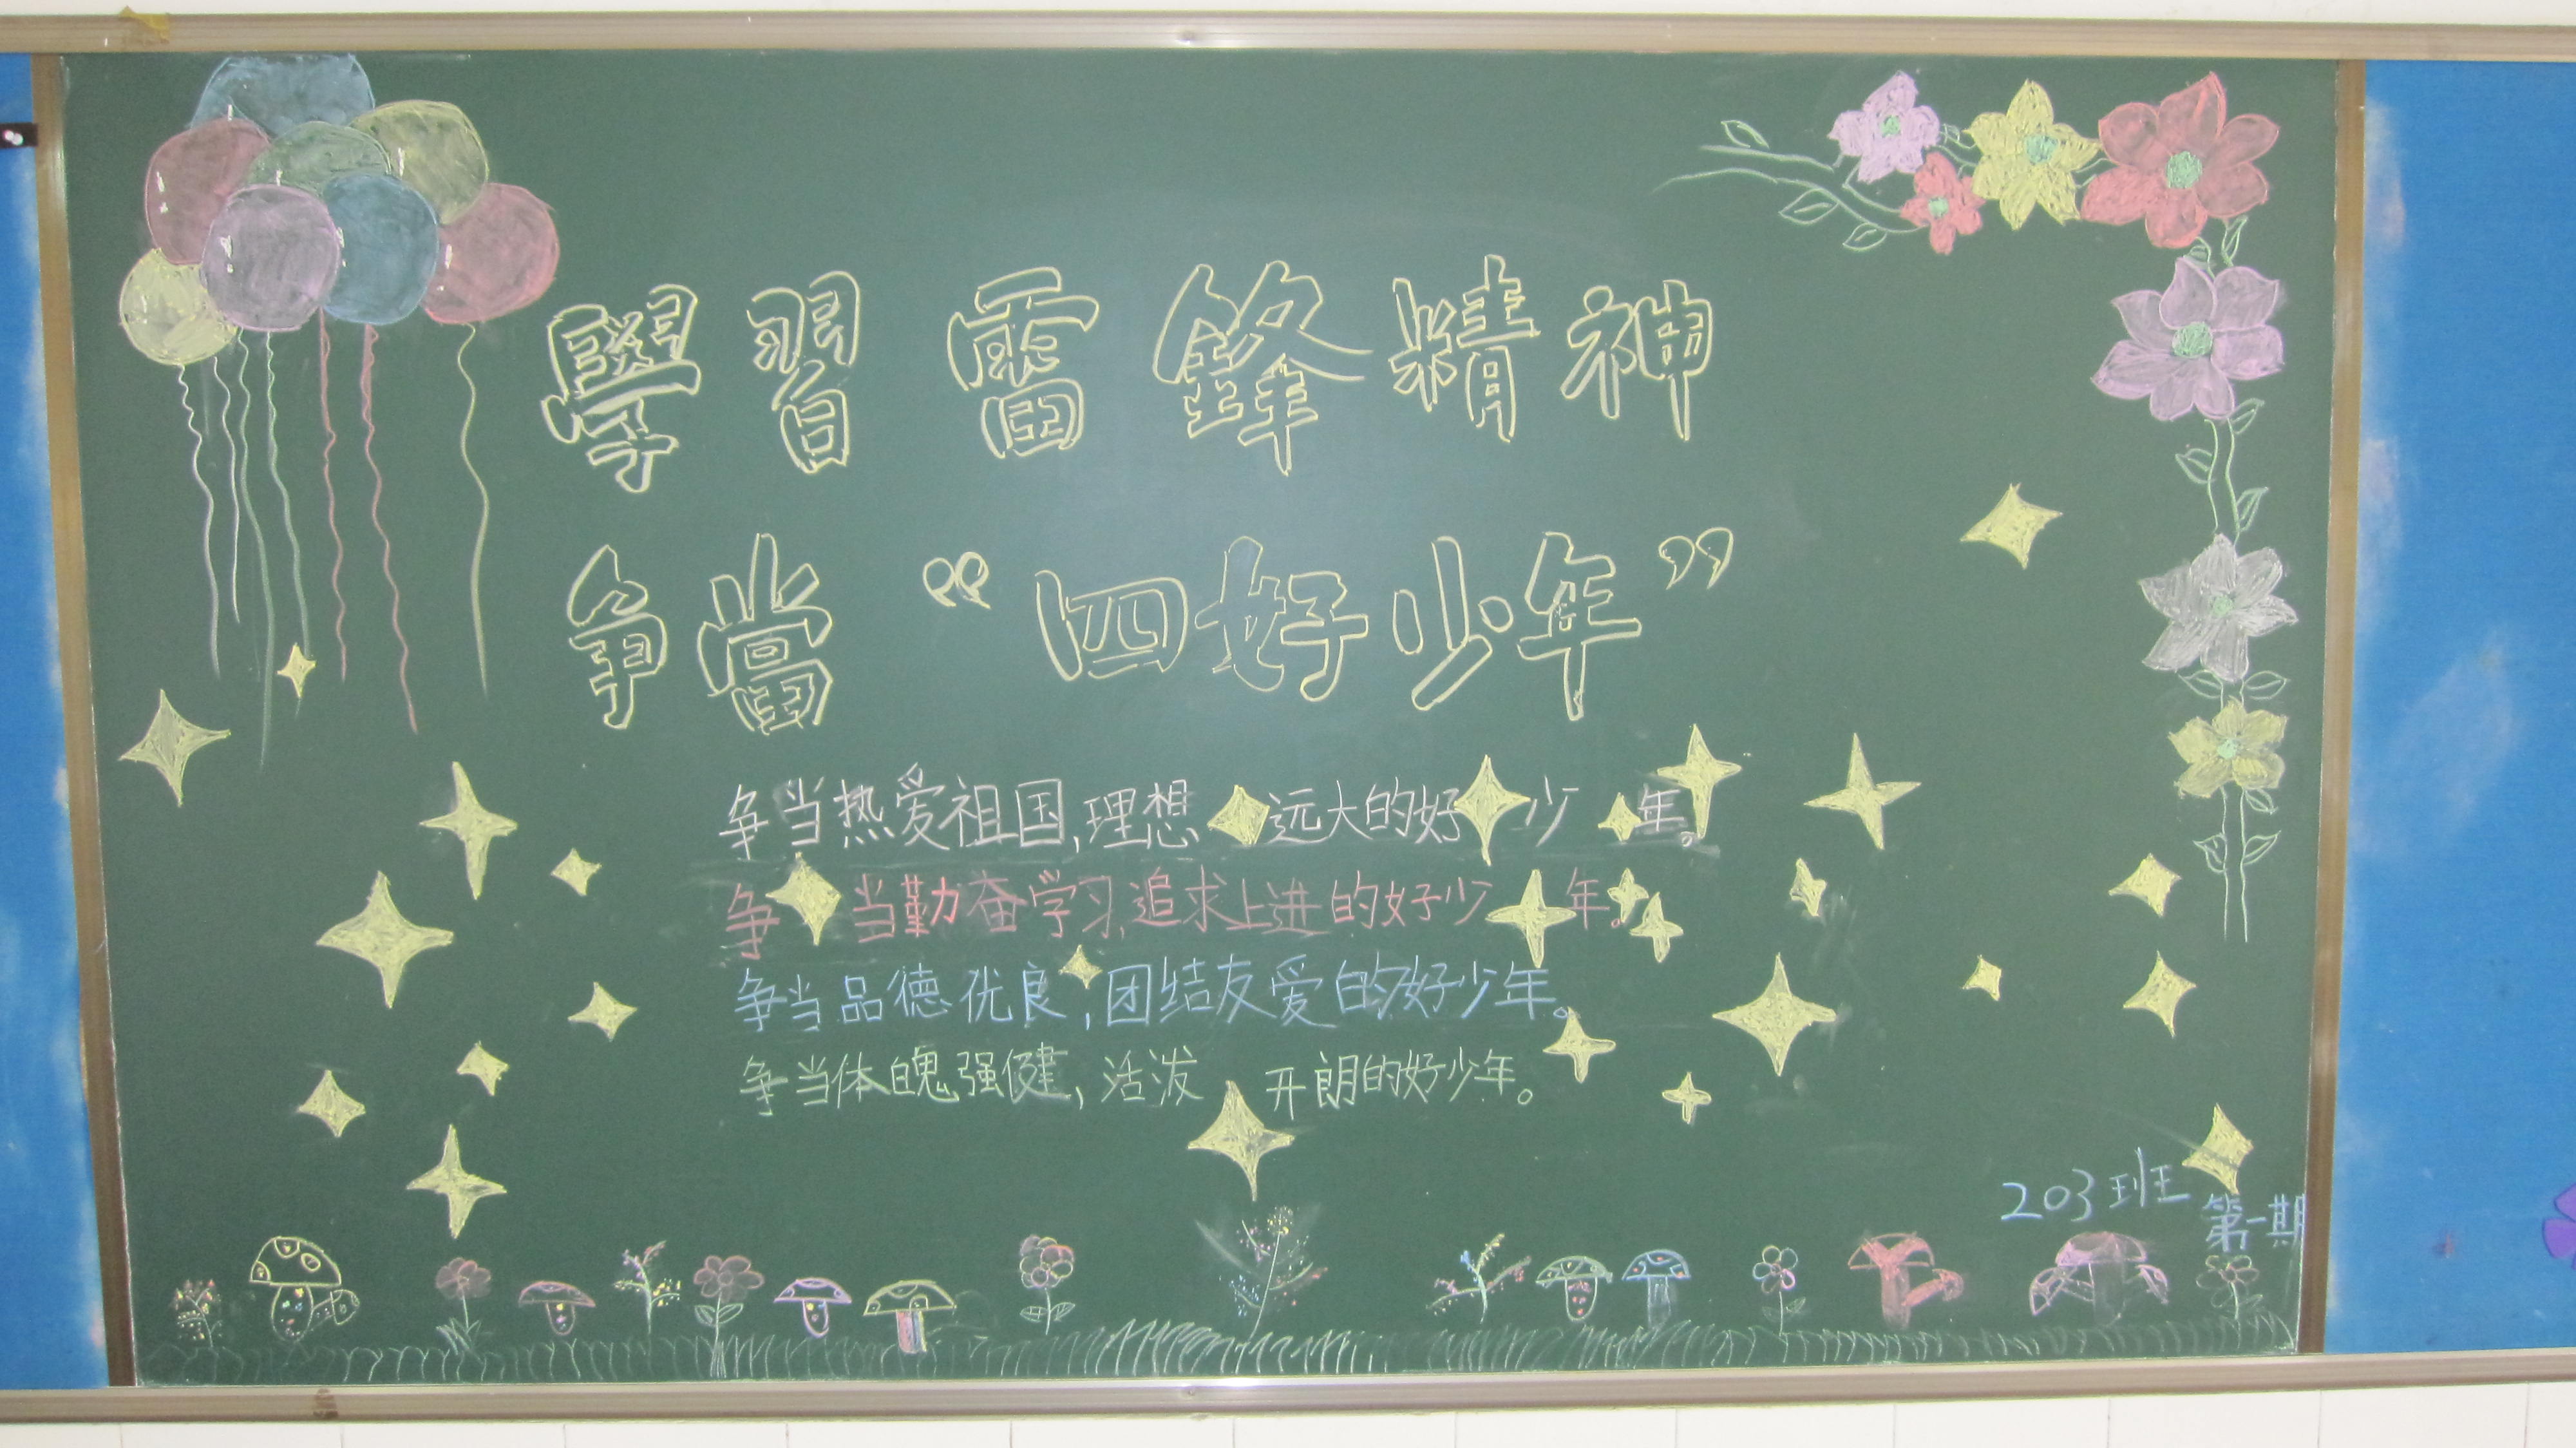 學習雷鋒精神
争當“四好少年”
争当热爱祖国,理想远大的好少年。
争当勤奋学习,追求上进的好少年。
争当品德优良,团结友爱的好少年。
争当体魄强健,活泼开朗的好少年。
203班
第一期